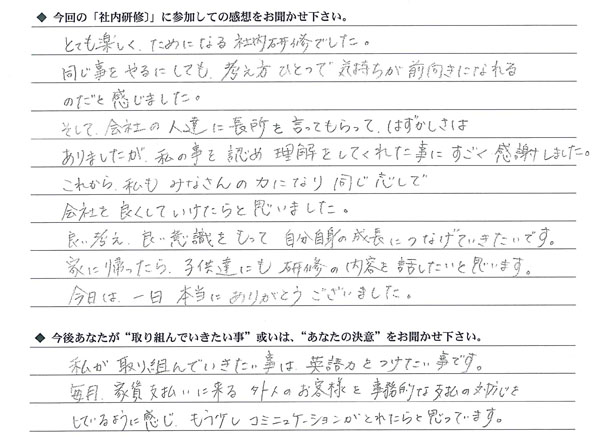 ◆ 今回の「社内研修」に参加しての感想をお聞かせ下さい。
とても楽しく、ためになる社内研修でした。
同じ事をやるにしても、考え方ひとつで気持ちが前向きになれる
のだと感じました。
そして、会社の人達に長所を言ってもらって、はずかしさは
ありましたが、私の事を認め理解をしてくれた事にすごく感謝しました。
これから、私もみなさんの力になり同じ志しで
会社を良くしていけたらと思いました。
良い考え、良い意識をもって自分自身の成長につなげていきたいです。
家に帰ったら、子供達にも研修の内容を話したいと思います。
今日は、一日本当にありがとうございました。
◆ 今後あなたが“取り組んでいきたい事”或いは、“あなたの決意”をお聞かせ下さい。
私が取り組んでいきたい事は、英語力をつけたい事です。
毎月、家賃支払いに来る外人のお客様を事務的な支払の対応を
しているように感じ、もう少しコミニュケーションがとれたらと思っています。